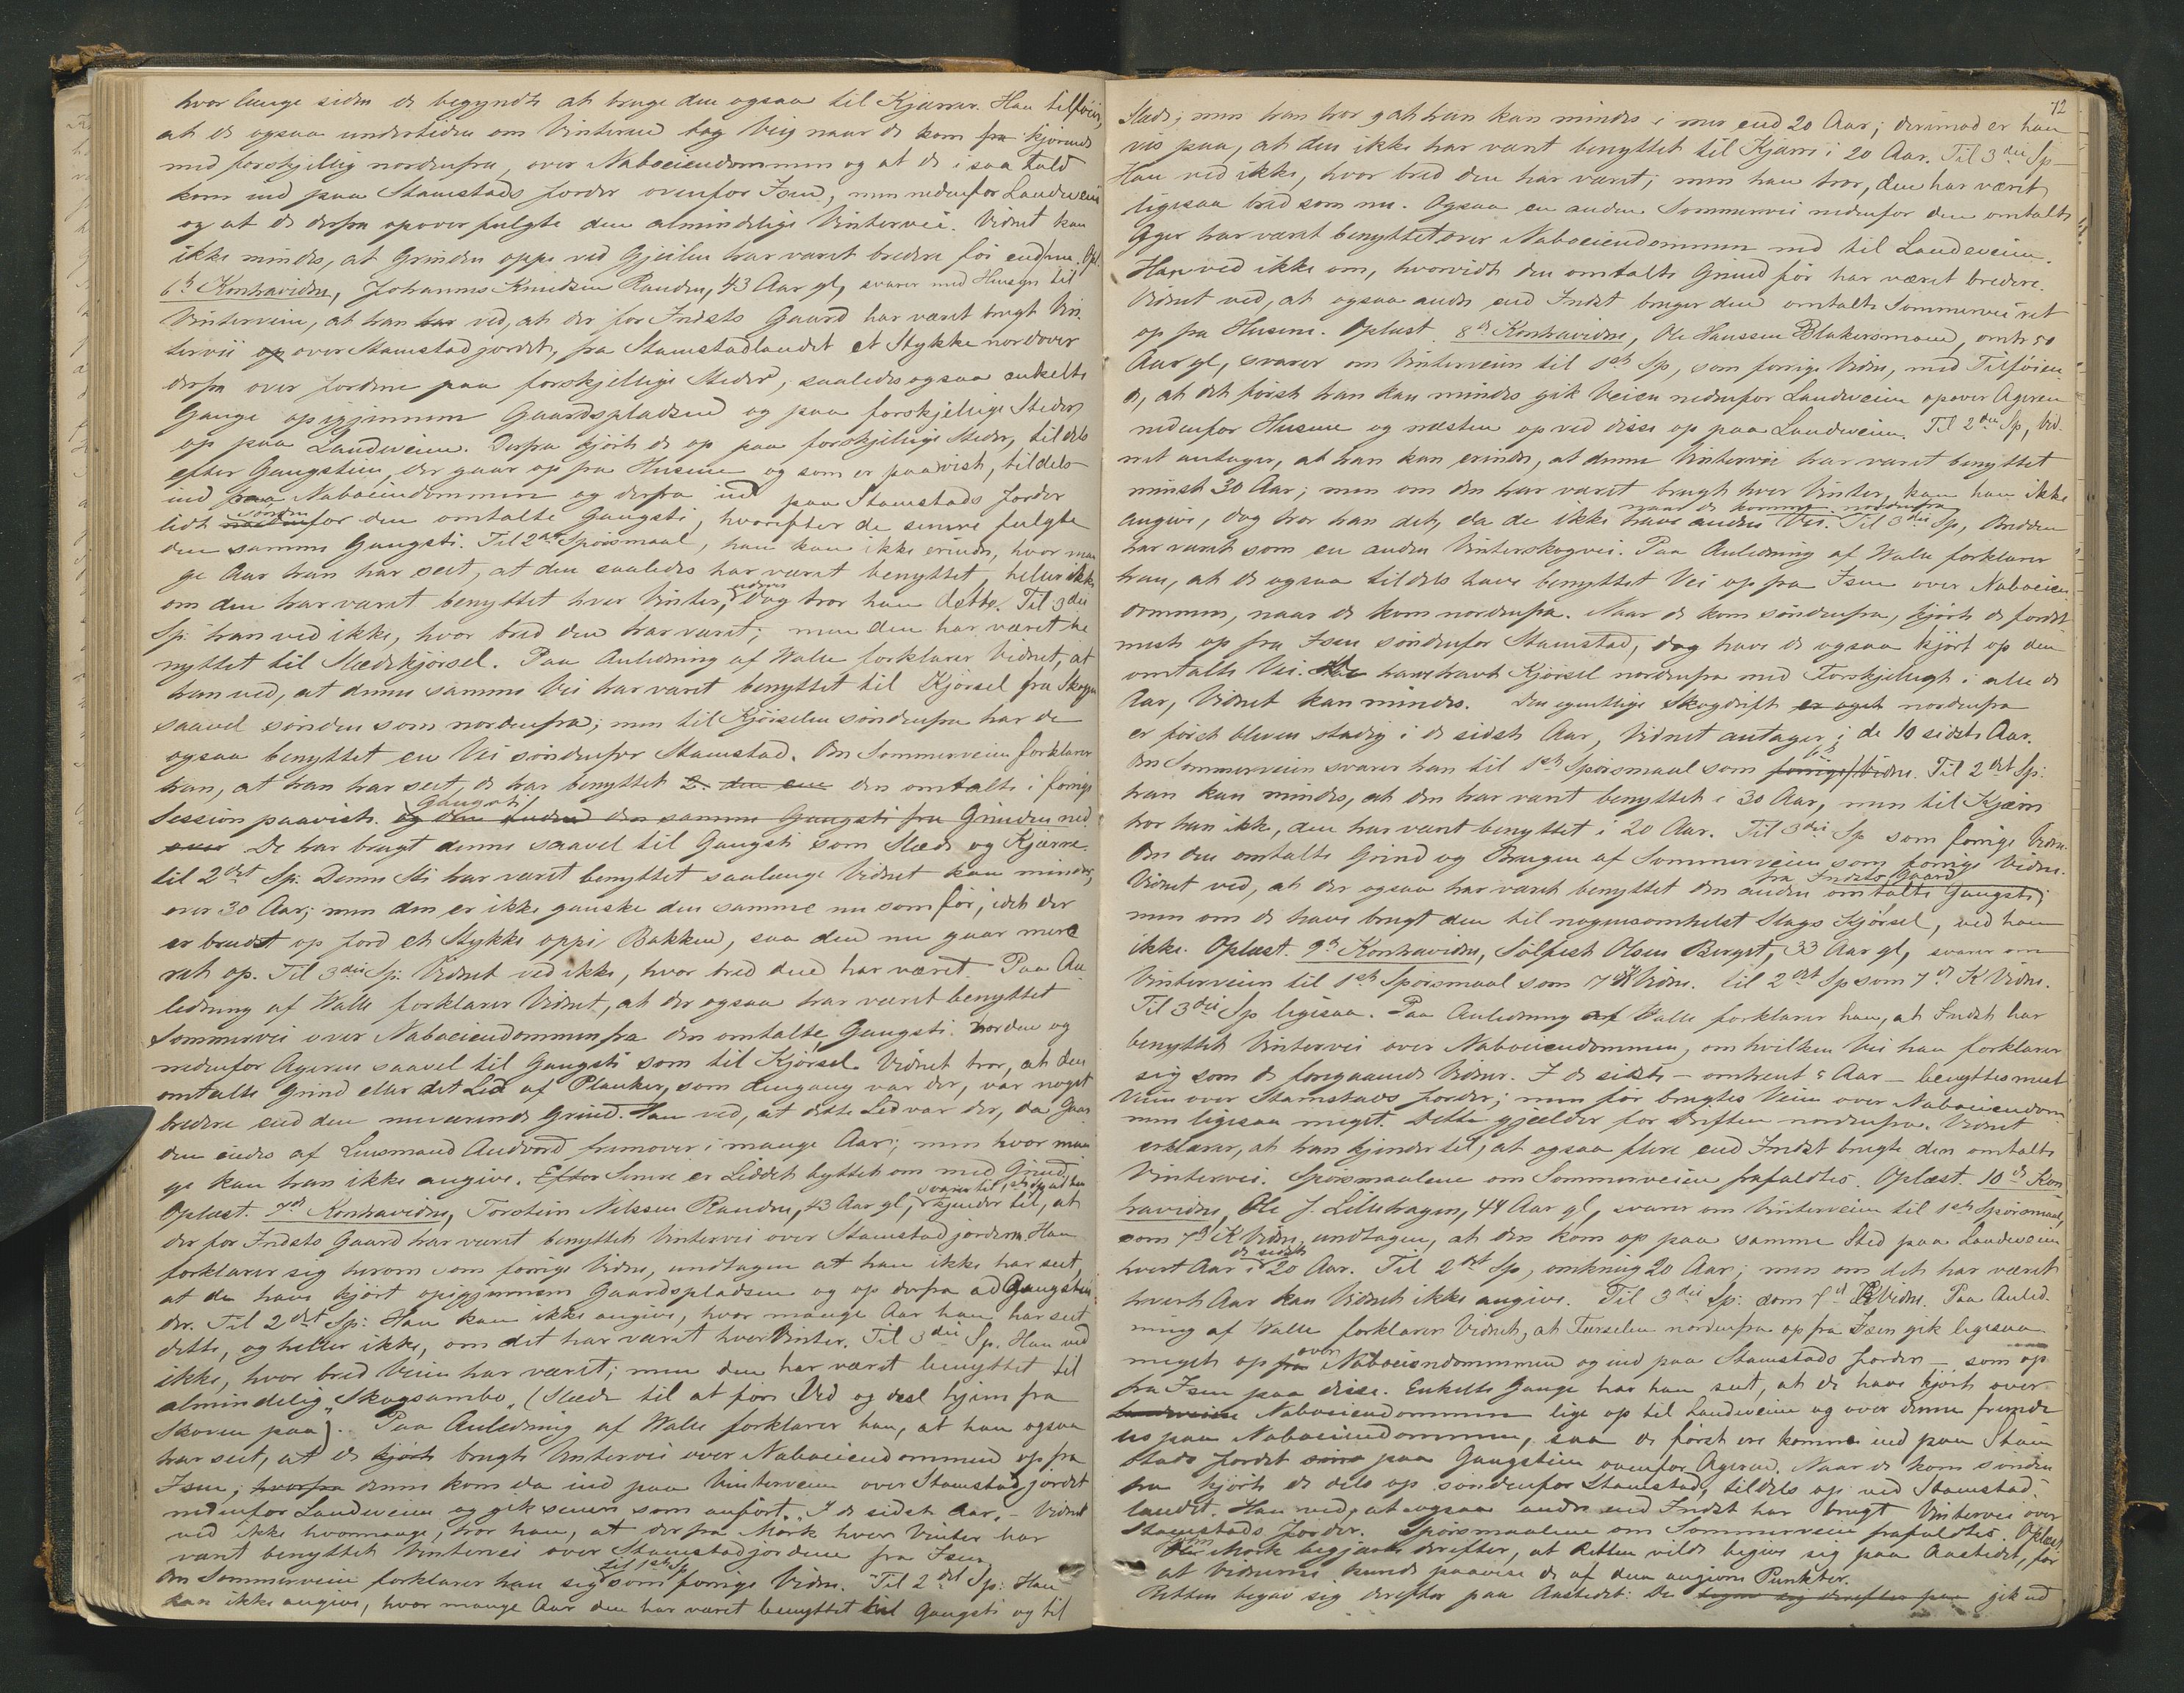 hvor længe siden de begyndte at bruge den ogsaa til Kjærrer. Han tilføier,
at de ogsaa undertiden om Vinteren tog Veig naar de kom fra kjørende
med forskjellig nordenfra, over Naboeiendommen og at de i saa Fald
kom ind paa Stamstads Jorder ovenfor Isen, men nedenfor Landeveien
og at de derfra opover fulgte den almindelige Vintervei. Vidnet kan
ikke mindes, at Grinden oppe ved Gjeilen har været bredere før end nu. Opl.
6te Kontravidne, Johannes Knudsen Randen, 43 Aar gl, svarer med Hensyn til
Vinterveien, at han har ved, at der for Indsets Gaard har været brugt Vin-
tervei op over Stamstadjordet, fra Stamstadlandet et Stykke nordover
derfra over Jorderne paa forskjellige Steder, saaledes ogsaa enkelte
Gange opigjennem Gaardspladsen og paa forskjellige Steder
op paa Landeveien. Derfra kjørte de op paa forskjellige Steder, tildels
efter Gangstien, der gaar op fra Husene og som er paavist, tildels
ind paa Naboeiendommen og derfra ind paa Stamstads Jorder
lidt nordenfor sønden den omtalte Gangsti, hvorefter de senere fulgte
den samme Gangsti. Til 2det Spørsmaal, han kan ikke erindre, hvor man-
ge Aar han har seet, at den saaledes har været benyttet, heller ikke
om den har været benyttet hver Vinter, dog tror han dette. Til 3die
Sp: han ved ikke, hvor bred den har været; men den har været be-
nyttet til Slædekjørsel. Paa Anledning af Walle forklarer Vidnet, at
han ved, at denne samme Vei har været benyttet til Kjørsel fra Skogen
saavel sønden som nordenfra; men til Kjørselen søndenfra har de
ogsaa benyttet en Vei søndenfor Stamstad. Om Sommerveien forklarer
han, at han har seet, de har benyttet 2. den ene den omtalte i forrige
Session paaviste Gangsti og den anden den samme Gangsti fra Grinden ned-
over De har brugt denne saavel til Gangsti som Slæde og Kjærre.
til 2det Sp: Denne Sti har været benyttet saalænge Vidnet kan mindes,
over 30 Aar; men den er ikke ganske den samme nu som før, idet der
er brudt op Jord et Stykke oppi Bakken, saa den nu gaar mere
ret op. Til 3die Sp: Vidnet ved ikke, hvor bred den har været. Paa An-
ledning af Walle forklarer Vidnet, at der ogsaa har været benyttet
Sommervei over Naboeiendommen fra den omtalte Gangsti norden og
nedenfor Ageren saavel til Gangsti som til Kjørsel. Vidnet tror, at den
omtalte Grind eller det Led af Planker, som dengang var der, var noget
bredere end den nuværende Grind. Han ved, at dette Led var der, da Gaar-
den eiedes af Lensmand Audvord fremover i mange Aar; men hvor man-
ge kan han ikke angive. Efter Senere er Leddet byttet om med Grind.
Oplæst. 7de Kontravidne, Torstein Nilssen Randen, 43 Aar gl, svarer til 1ste Sp at han kjender til, at
der for Indsets Gaard har været benyttet Vintervei over Stamstadjorderne. Han
forklarer sig herom som forrige Vidne, undtagen at han ikke har seet,
at de have kjørt opigjennem Gaardspladsen og op derfra ad Gangstien
der. Til 2det Sp: Han kan ikke angive, hvor mange Aar han har seet
dette, og heller ikke, om det har været hver Vinter. Til 3die Sp. Han ved
ikke, hvor bred Veien har været; men den har været benyttet til
almindelig „Skogsambo„ (Slæde til at føre Ved og desl hjem fra
Skoven paa). Paa Anledning af Walle forklarer han, at han ogsaa
har seet, at de kjørte brugte Vintervei over Naboeiendommen op fra
Isen; hvorfra denne kom da ind paa Vinterveien over Stamstadjordet
nedenfor Landeveien og gik senere som anført. I de sidste Aar, – Vidnet
ved ikke hvormange, tror han, at der fra Mørk hver Vinter har
været benyttet Vintervei over Stamstadjordene fra Isen
Om Sommerveien forklarer han sig til 1ste Sp som forrige Vidne. Til 2det Sp: Han
kan ikke angive, hvor mange Aar den har været benyttet til Gangsti og til
72
Slæde; men han tror at han kan mindes i mer end 20 Aar; derimod er han
vis paa, at den ikke har været benyttet til Kjærre i 20 Aar. Til 3die Sp
Han ved ikke, hvor bred den har været; men han tror, den har været
ligesaa bred som nu. Ogsaa en anden Sommervei nedenfor den omtalte
Ager har været benyttet over Naboeiendommen ned til Landeveien.
Han ved ikke om, hvorvidt den omtalte Grind før har været bredere.
Vidnet ved, at ogsaa andre end Indset bruger den omtalte Sommervei ret
op fra Husene. Oplæst. 8de Kontravidne, Ole Hanssen Blakersmoend, omtr 50
Aar gl, svarer om Vinterveien til 1ste Sp, som forrige Vidne, med Tilføien-
de, at det først han kan mindes gik Veien nedenfor Landeveien opover Ageren
nedenfor Husene og næsten op ved disse op paa Landeveien. Til 2det Sp, Vid-
net antager, at han kan erindre, at denne Vintervei har været benyttet
mindst 30 Aar; men om den har været brugt hver Vinter, kan han ikke
angive, dog tror han det, da de ikke have anden Vei naar de komme nordenfra. Til 3die Sp, Bredden
har været som en anden Vinterskogvei. Paa Anledning af Walle forklarer
han, at de ogsaa tildels have benyttet Vei op fra Isen over Naboeien-
dommen, naar de kom nordenfra. Naar de kom søndenfra, kjørte de fordet-
meste op fra Isen søndenfor Stamstad, dog have de ogsaa kjørt op den
omtalte Vei. De have havt Kjørsel nordenfra med Forskjelligt i alle de
Aar, Vidnet kan mindes. Den egentlige Skogdrift er også nordenfra
er først bleven stadig i de sidste Aar, Vidnet antager i de 10 sidste Aar.
Om Sommerveien svarer han til 1ste Spørsmaal som forrige Vidne. Til 2det Sp:
han kan mindes, at den har været benyttet i 30 Aar, men til Kjærre
tror han ikke, den har været benyttet i 20 Aar. Til 3die Sp som forrige Vidne.
Om den omtalte Grind og Brugen af Sommerveien som forrige Vidne.
Vidnet ved, at der ogsaa har været benyttet den anden fra Indsets Gaard omtalte Gangsti;
men om de have brugt den til nogensomhelst Slags Kjørsel, ved han
ikke. Oplæst. 9de Kontravidne, Sølfest Olsen Berget, 33 Aar gl, svarer om
Vinterveien til 1ste Spørsmaal som 7de K Vidne. til 2det Sp som 7de K Vidne.
Til 3die Sp ligesaa. Paa Anledning af Walle forklarer han, at Indset har
benyttet Vintervei over Naboeiendommen, om hvilken Vei han forklarer
sig som de foregaaende Vidner. I de sidste – omtrent 5 Aar – benyttes mest
Veien over Stamstads Jorder; men før brugtes Veien over Naboeiendom-
men ligesaa meget. Dette gjælder for Driften nordenfra. Vidnet
erklærer, at han kjender til, at ogsaa flere end Indset brugte den omtalte
Vintervei. Spørsmaalene om Sommerveien frafaldtes. Oplæst. 10de Kon-
travidne, Ole J. Lillehagen, 44 Aar gl, svarer om Vinterveien til 1ste Spørsmaal,
som 7de K Vidne, undtagen, at den kom op paa samme Sted paa Landeveien
hvert Aar i de sidste 20 Aar. Til 2det Sp, omkring 20 Aar; men om det har været
hvert Aar kan Vidnet ikke angive. Til 3die Sp: som 7de K Vidne. Paa Anled-
ning af Walle forklarer Vidnet, at Færselen nordenfra op fra Isen gik ligesaa
meget op fra over Naboeiendommen og ind paa Stamstads Jorder – som op
fra Isen paa disse. Enkelte Gange har han seet, at de have kjørt over
Landeveien Naboeiendommen lige op til Landeveien og over denne fremde-
les paa Naboeiendommen, saa de først ere komne ind paa Stam-
stads Jordet paa Gangstien ovenfor Ageren. Naar de kom sønden-
fra kjørte de dels op søndenfor Stamstad, tildels op ved Stamstad-
landet. Han ved, at ogsaa andre end Indset har brugt Vintervei over
Stamstads Jorder. Spørsmaalene om Sommerveien frafaldtes. Oplæst
Mørk begjærte derefter, at Retten vilde begive sig paa Aastedet, for
at Vidnerne kunde paavise de af dem angivne Punkter.
Retten begav sig derefter paa Aastedet: De begav sig derefter paa gik ud